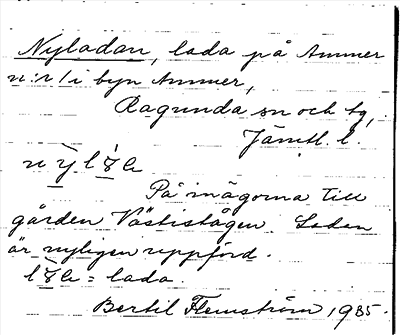 Nyladan, lada på Ammer
n:r 1 i byn Ammer,
Ragunda sn och tg,
Jämtl. l.
På inägorna till
gården Västistågen. Ladan
är nyligen uppförd.
= lada.
Bertil Flemström 1935.